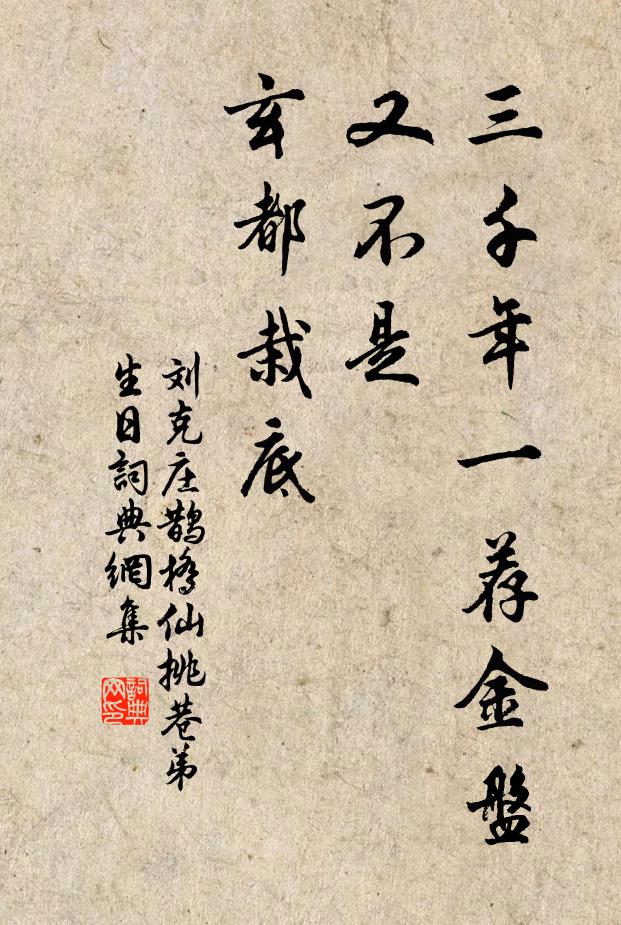 三千年一荐金盤
又不是
玄都栽底
刘克庄鵲橋仙桃巷弟
生日詞典網集
詞典
网印